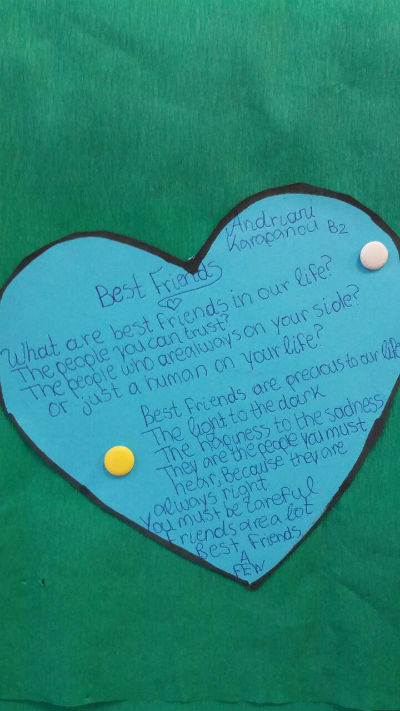 Andriani
Karapanou B2
Best Friends
What are best friends in our life?
The people you can trust?
The people who are always on your side?
or just a human on your life?
Best Friends are precious to our life
The light to the dark
The hapiness to the sadness
They are the people you must
hear, because they are
always right
You must be careful
Friends are a lot
Best Friends
A
FEW